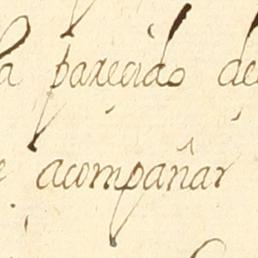 parecido de
acompañar